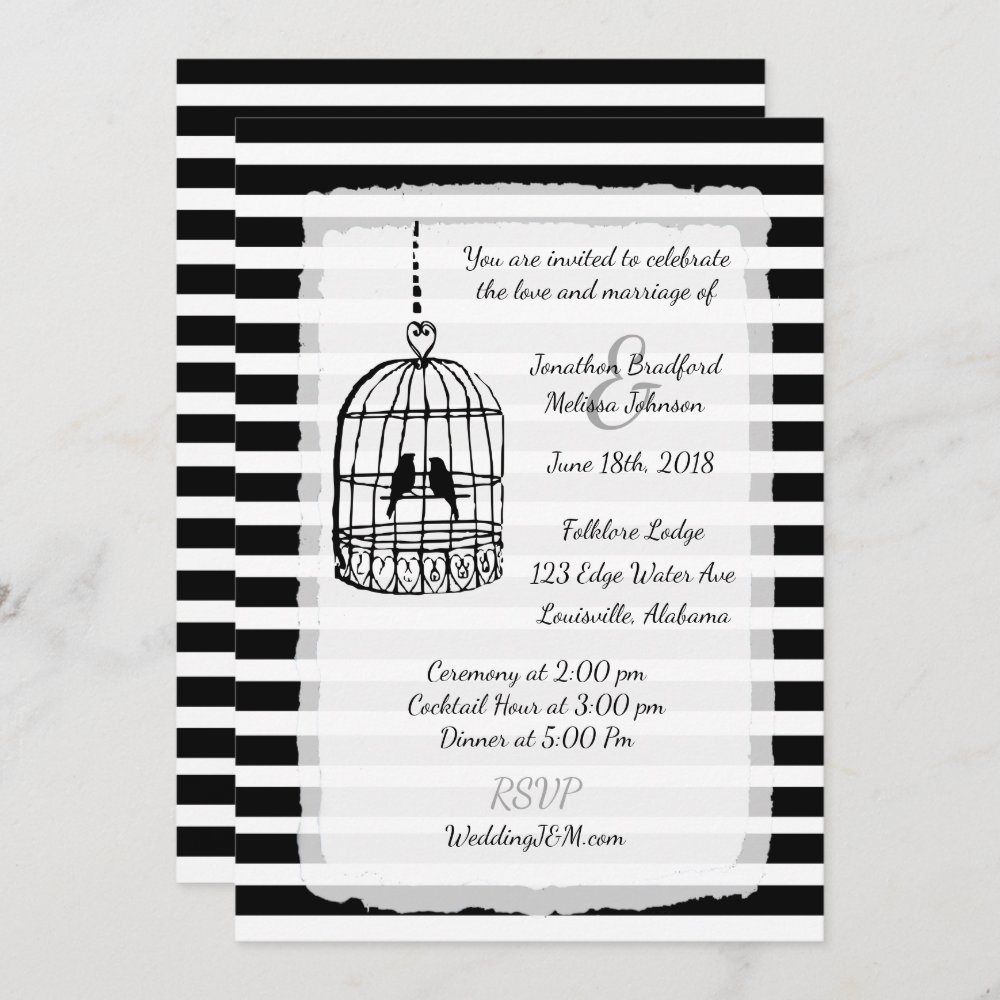 You are invited to celebrate
the love and marriage of
&
Jonathon Bradford
Melissa Johnson
June 18th, 2018
Folklore Lodge
123 Edge Water Ave
Louisville, Alabama
Ceremony at 2:00 pm
Cocktail Hour at 3:00 pm
Dinner at 5:00 Pm
RSVP
WeddingJ&M.com